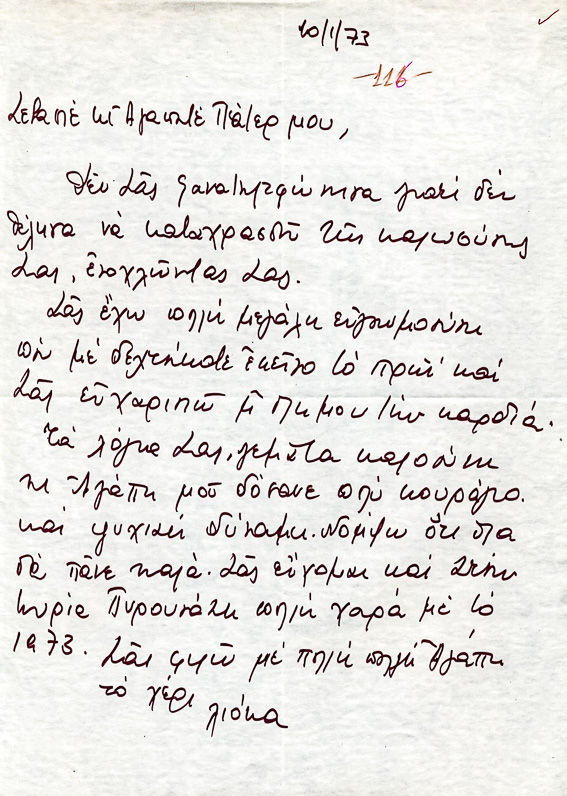 10/1/73
-116-
Σεβαστέ κι Ἀγαπητέ Πάτερ μου,
Δέν Σᾶς ξανατηλεφώνησα γιατί δέν
θέλησα νὰ καταχρασθῶ τῆς καλωσύνης
Σας, ἐνοχλῶντας Σας.
Σᾶς ἔχω πολλή μεγάλη εὐγνωμοσύνη
ποὺ μέ δεχτήκατε ἐκεῖνο τὸ πρωί καί
Σᾶς εὐχαριστῶ μ' ὅλη μου τήν καρδιά.
Τὰ λόγια Σας, γεμᾶτα καλοσύνη
κι Ἀγάπη μοῦ δόσανε πολύ κουράγιο.
καί ψυχική δύναμη. Νομίζω ὅτι ὅλα
θὰ πᾶνε καλά. Σᾶς εὔχομαι καί στήν
κυρία Πυρουνάκη πολλή χαρά μέ τὸ
1973.
Σᾶς φιλῶ μέ πολλή πολλή Ἀγάπη
τὸ χέρι
Λιόκα